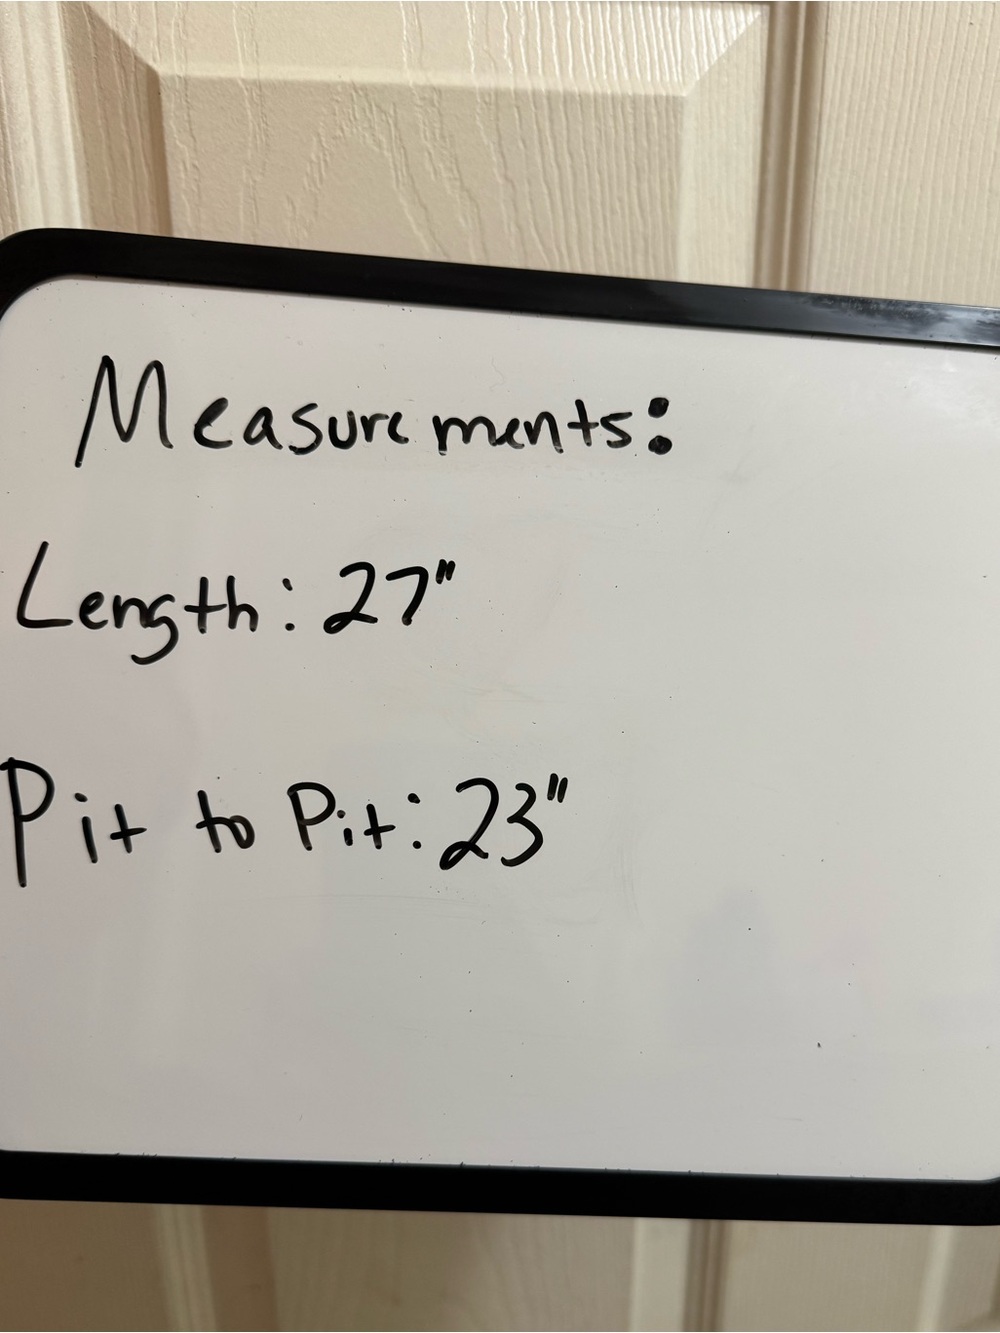 Measurements:
Length: 27"
Pit to Pit: 23"